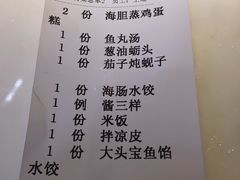 2 份 海胆蒸鸡蛋
糕
1 份 鱼丸汤
1 份 葱油蛎头
1 份 茄子炖蚬子
1 份 海肠水饺
1 例 酱三样
1 份 米饭
1 份 拌凉皮
1 份 大头宝鱼馅
水饺